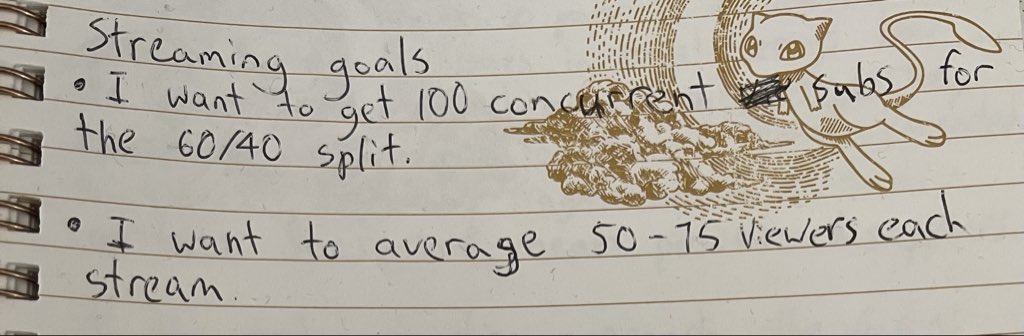 Streaming goals
• I want to get 100 concurrent subs for
the 60/40 split.
• I want to average 50-75 viewers each
stream.